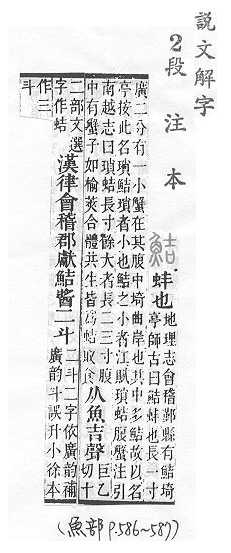 說文解字
2段注本
鮚
蚌也
地理志會稽鄞縣有鮚埼
亭師古曰鮚蚌也長一寸
廣二分有一小蟹在其腹中埼曲岸也其中多鮚故以名
亭按此名瑣鮚瑣者小也鮚之小者江賦瑣蛣腹蟹注引
南越志曰瑣蛣長寸餘大者長二三寸腹
中有蟹子如榆莢合體共生皆爲蛣取食
从魚吉聲
巨乙
切十
二部文選
字作蛣
漢律會稽郡獻鮚醬二斗
二斗二字依廣韵補
廣韵斗誤升小徐本
作三
斗
(魚部 P.586~587)